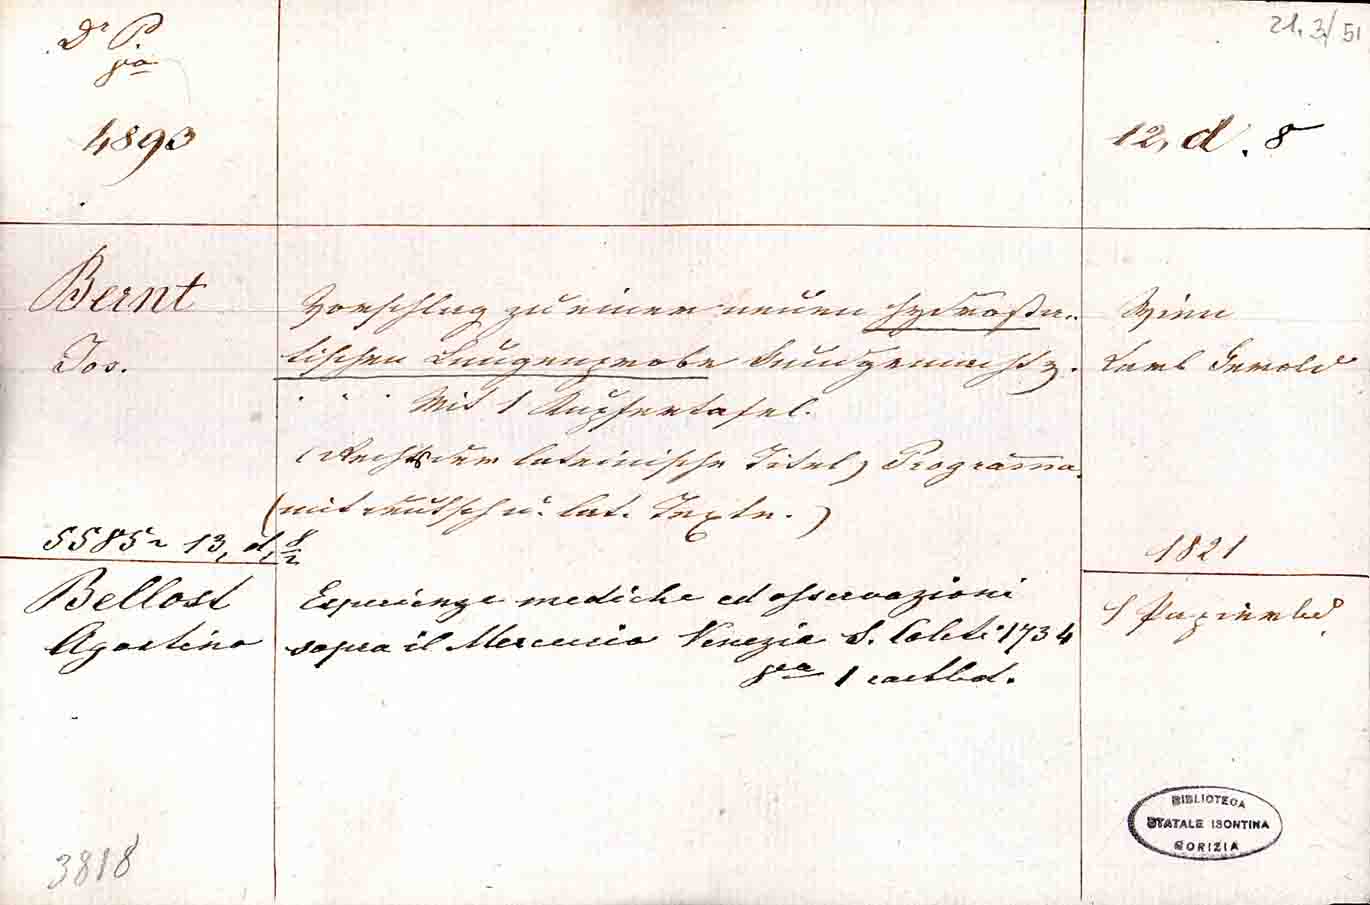 Dr P.
8va
21.3/51
4893
12, d. 8
Bernt
Jos.
Vorschlag zu einer neuen hydrosta-
tischen Lungenprobe kundgemacht z.
. . . Mit 1 Kupfertafel.
(Rechts der lateinische Titel) Programma.
(mit deutsch u. lat. Texte.)
Wien
Carl Gerold
1821
1 Papierbd
5585 13, d, 8/2
Bellost
Agostino
Esperienze mediche ed osservazioni
sopra il Mercurio Venezia S. Coleti 1734
8va 1 cartbd.
3818
BIBLIOTECA
STATALE ISONTINA
GORIZIA